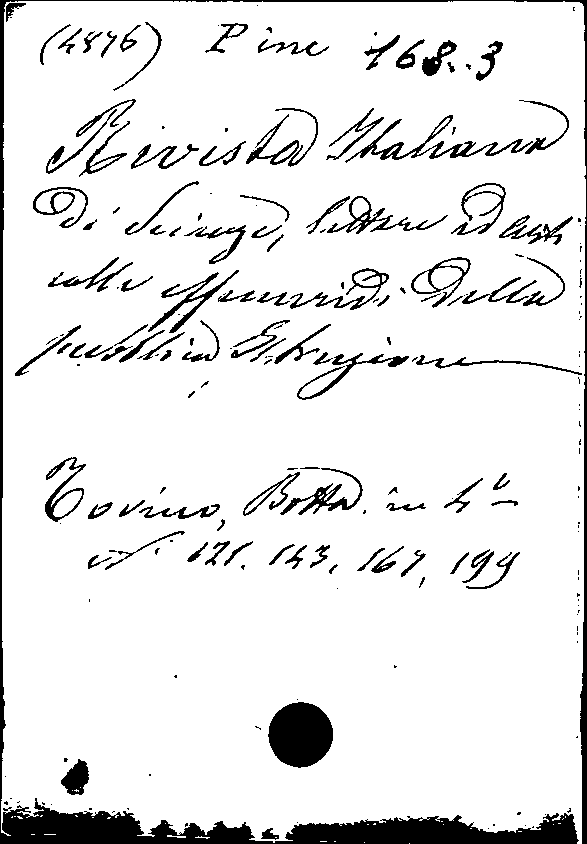 (4876) Pine 168.3
Rivista Italiana
di Scienze, lettere ed arti
colle effemeridi della
pubblica Istruzione
Torino, Botta. in 4º
Nⁱ 121. 143, 167, 199